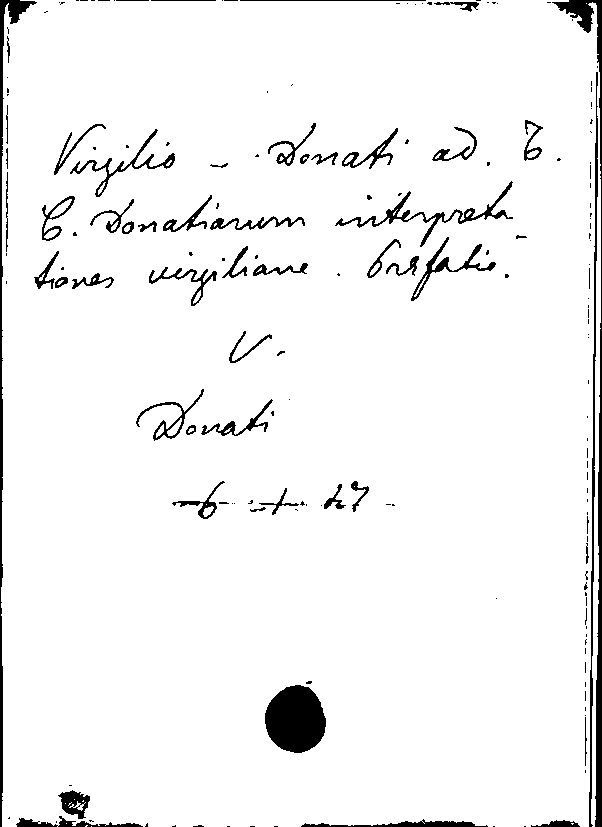 Virgilio - Donati ad. T.
C. Donatianum interpreta
tiones virgiliane. Prefatio.
V.
Donati